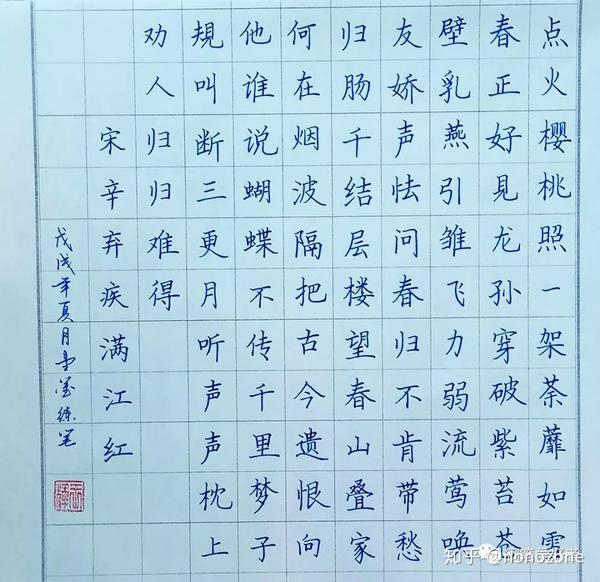 点火樱桃照一架荼蘼如雪
春正好見龙孙穿破紫苔苍
壁乳燕引雏飞力弱流莺唤
友娇声怯问春归不肯带愁
归肠千结层楼望春山叠家
何在烟波隔把古今遗恨向
他谁说蝴蝶不传千里梦子
規叫断三更月听声声枕上
劝人归归难得
宋辛弃疾满江红
戊戌年夏月练笔
知乎 @nonozone